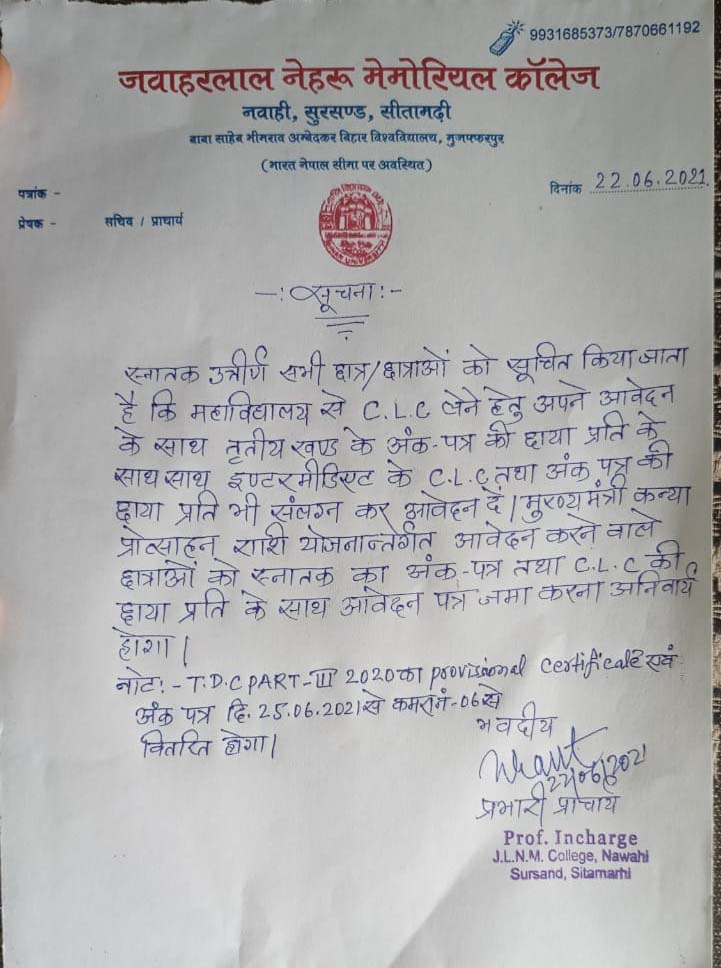 9931685373/7870661192
जवाहरलाल नेहरू मेमोरियल कॉलेज
नवाही, सुरसण्ड, सीतामढ़ी
बाबा साहेब भीमराव अम्बेदकर बिहार विश्वविद्यालय, मुजफ्फरपुर
(भारत नेपाल सीमा पर अवस्थित)
पत्रांक -
दिनांक 22.06.2021
प्रेषक - सचिव / प्राचार्य
-: सूचना :-
स्नातक उत्तीर्ण सभी छात्र/छात्राओं को सूचित किया जाता
है कि महाविद्यालय से C.L.C लेने हेतु अपने आवेदन
के साथ तृतीय खण्ड के अंक-पत्र की छाया प्रति के
साथ साथ इण्टरमीडिएट के C.L.C तथा अंक पत्र की
छाया प्रति भी संलग्न कर आवेदन दें। मुख्यमंत्री कन्या
प्रोत्साहन राशी योजनान्तर्गत आवेदन करने वाले
छात्राओं को स्नातक का अंक-पत्र तथा C.L.C की
छाया प्रति के साथ आवेदन पत्र जमा करना अनिवार्य
होगा।
नोट:- T.D.C PART-III 2020 का provisional certificate एवं
अंक पत्र दि. 25.06.2021 से कमरा नं-06 से
वितरित होगा।
भवदीय
22/06/2021
प्रभारी प्राचार्य
Prof. Incharge
J.L.N.M. College, Nawahi
Sursand, Sitamarhi